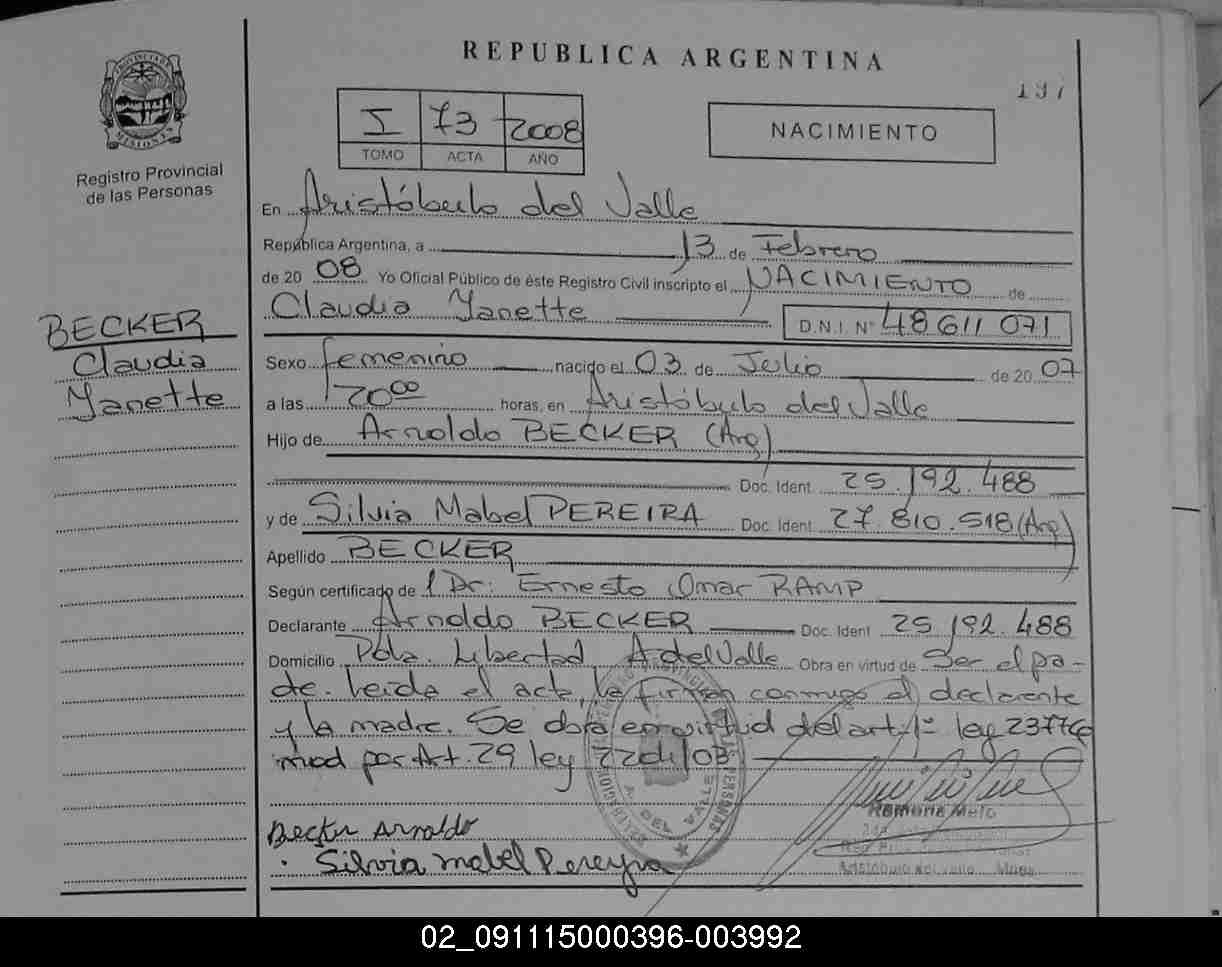 REPUBLICA ARGENTINA
197
PROVINCIA DE MISIONES
Registro Provincial
de las Personas
I 73 2008
TOMO ACTA AÑO
NACIMIENTO
En Aristóbulo del Valle
República Argentina, a 13 de Febrero
de 20 08 Yo Oficial Público de éste Registro Civil inscripto el NACIMIENTO de
Claudia Yanette D.N.I. Nº 48611071
BECKER
Claudia
Yanette
Sexo femenino nacido el 03 de Julio de 20 07
a las 20 00 horas, en Aristóbulo del Valle
Hijo de Arnoldo BECKER (Arg)
Doc. Ident. 25.192.488
y de Silvia Mabel PEREIRA Doc. Ident. 27.810.518 (Arg)
Apellido BECKER
Según certificado de 1 Dr: Ernesto Omar RAMP
Declarante Arnoldo BECKER Doc. Ident 25 192.488
Domicilio Pdta. Libertad, A del Valle Obra en virtud de Ser el pa-
de. Leída el acta, la firman conmigo el declarante
y la madre. Se obra en virtud del art. 1º ley 23776
mod por Art. 29 ley
Becker Arnoldo
Silvia mabel Pereyra
PERSONAS
A. DEL VALLE
Ramona Melo
Aristóbulo del Valle Mnes.
02_091115000396-003992